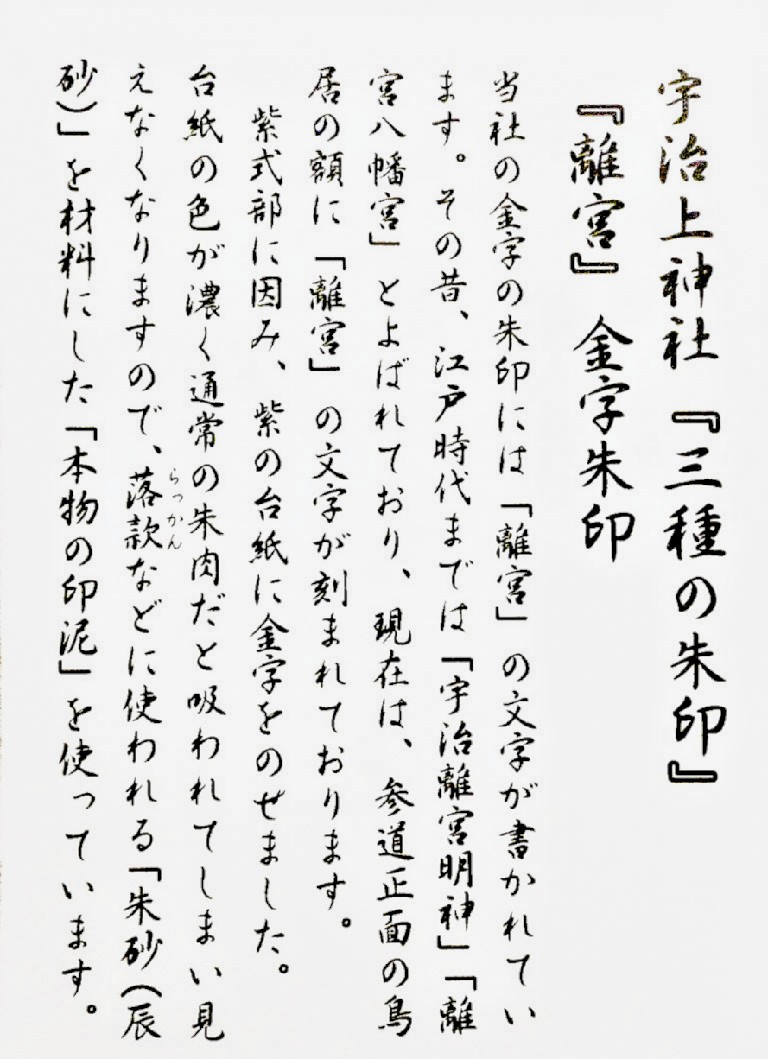 宇治上神社『三種の朱印』
『離宮』 金字朱印
当社の金字の朱印には「離宮」の文字が書かれてい
ます。その昔、江戸時代までは「宇治離宮明神」「離
宮八幡宮」とよばれており、現在は、参道正面の鳥
居の額に「離宮」の文字が刻まれております。
紫式部に因み、紫の台紙に金字をのせました。
台紙の色が濃く通常の朱肉だと吸われてしまい見
えなくなりますので、落款などに使われる「朱砂(辰
らっかん
砂)」を材料にした「本物の印泥」を使っています。